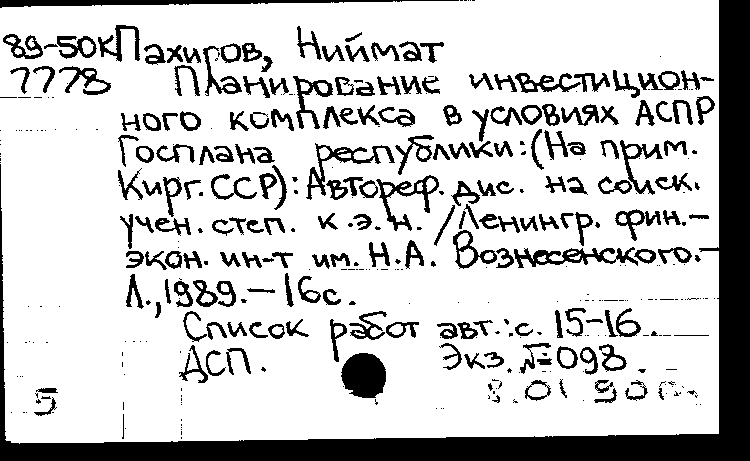 89-50К Пахиров, Ниймат
7778 Планирование инвестицион-
ного комплекса в условиях АСПР
Госплана республики: (На прим.
Кирг. ССР): Автореф. дис. на соиск.
учен. степ. к.э.н. // Ленингр. фин.-
экон. ин-т им. Н.А. Вознесенского.-
Л., 1989.-16с.
Список работ авт.: с. 15-16.
ДСП. Экз. №098.
5 8.01 90